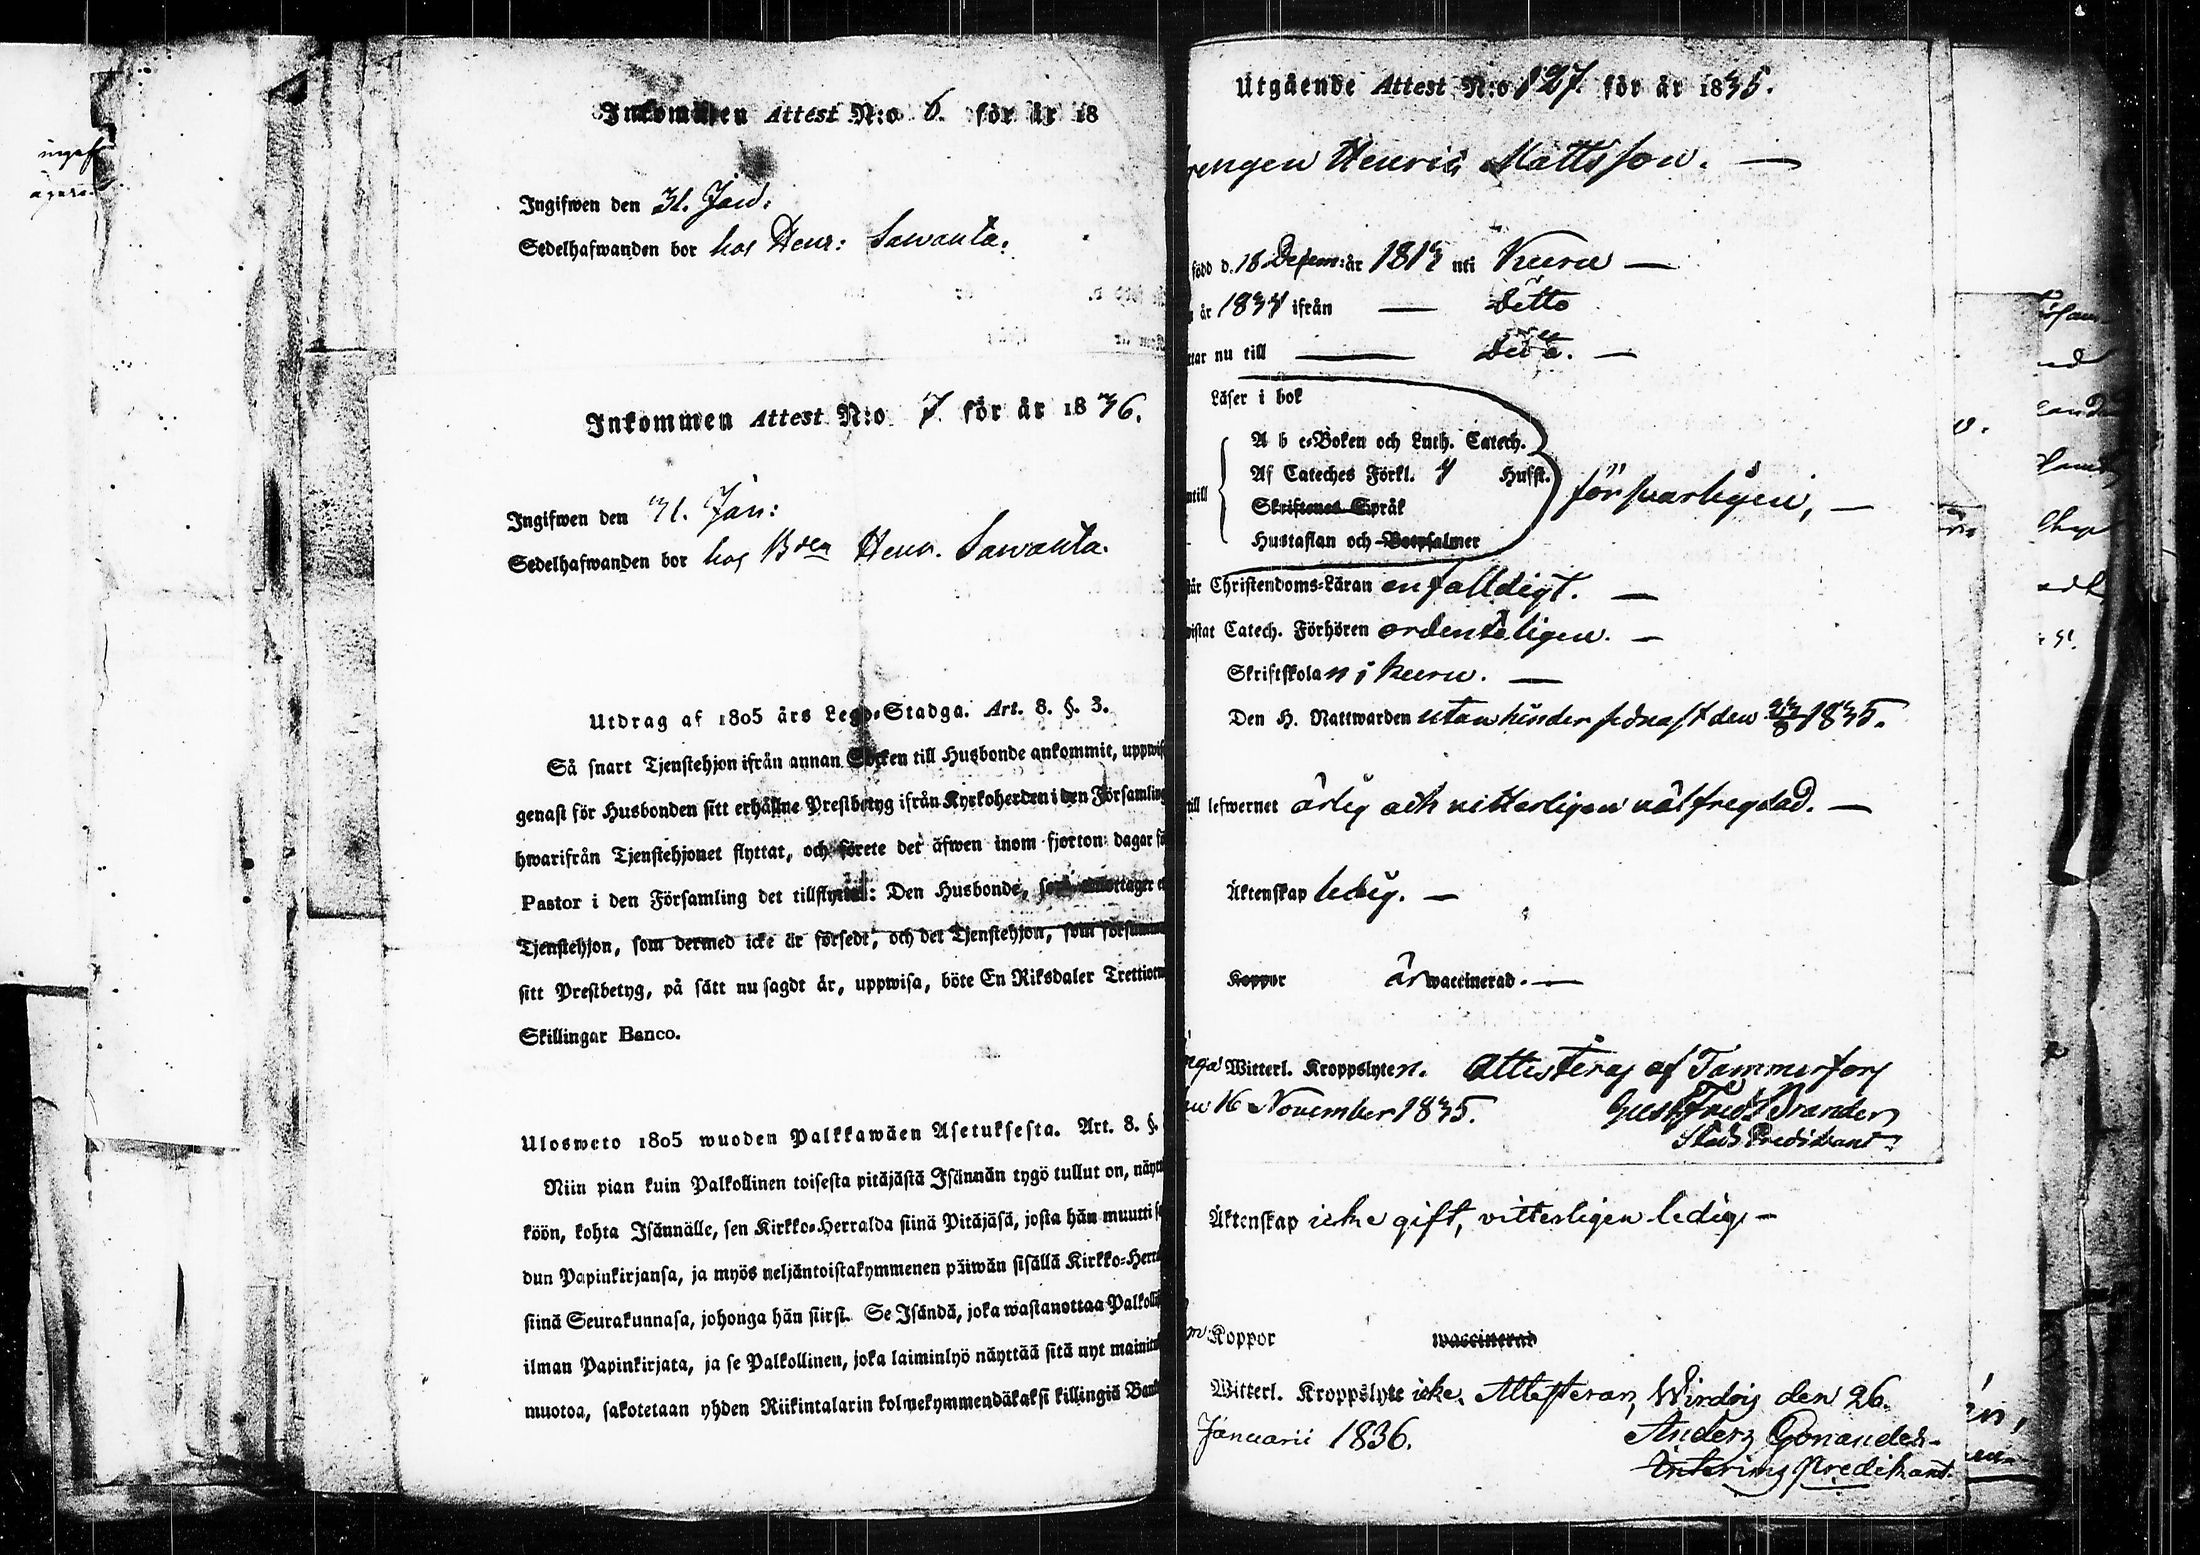 Inkommen Attest N:o 6. för år 18
Ingifwen den 31. Jan:
Sedelhafwanden bor hos Henr: Sawanta.
Inkommen Attest N:o 7 för år 1836.
Ingifwen den 31. Jan:
Sedelhafwanden bor hos Bden Henr. Sawanta.
Utdrag af 1805 års Lego-Stadga. Art. 8. §. 3.
Så snart Tjenstehjon ifrån annan Socken till Husbonde ankommit, uppwis
genast för Husbonden sitt erhållne Prestbetyg ifrån Kyrkoherden i den Församling
hwarifrån Tjenstehjonet flyttat, och förete det äfwen inom fjorton dagar fö
Pastor i den Församling det tillflyttat: Den Husbonde, som emottager e
Tjenstehjon, som dermed icke är försedt, och det Tjenstehjon, som försumm
sitt Prestbetyg, på sätt nu sagdt är, uppwisa, böte En Riksdaler Trettiotw
Skillingar Banco.
Ulosweto 1805 wuoden Palkkawäen Asetuksesta. Art. 8. §.
Niin pian kuin Palkollinen toisesta pitäjästä Isännän tygö tullut on, näytt
köön, kohta Isännälle, sen Kirkko-Herralda siinä Pitäjäsä, josta hän muutti s
dun Papinkirjansa, ja myös neljäntoistakymmenen päiwän sisällä Kirkko-Herra
siinä Seurakunnasa, johonga hän siirsi. Se Isändä, joka wastanottaa Palkolli
ilman Papinkirjata, ja se Palkollinen, joka laiminlyö näyttää sitä nyt mainitul
muotoa, sakotetaan yhden Riikintalarin kolmekymmendäkaksi killingiä Bank
Utgående Attest N:o 127. för år 1835.
rengen Henric Mattsson.
född d. 18 Decem: år 1813 uti Kuru
år 1834 ifrån Ditto
ttar nu till Dito.
Läser i bok
A b c-Boken och Luth. Catech.
Af Cateches Förkl. 4 Hufst.
Skriftenes Språk
Hustaflan och Botpsalmer
ntill
försvarligen,
står Christendoms-Läran enfalldigt.
wistat Catech. Förhören ordenteligen.
Skriftskolan i Kuru.
Den H. Nattwarden utan hinder sednast den 23/8 1835.
till lefwernet ärlig och vitterligen välfregdad.
Äktenskap ledig.
Koppor är waccinerad.
nga Witterl. Kroppslyten. Attesteras af Tammerfors
en 16 November 1835. Gust. Fred. Brander
Stads Predikant.
Äktenskap icke gift, vitterligen ledig
Koppor waccinerad
Witterl. Kroppslyte icke. Attesteras, Wirdois den 26.
Januarii 1836. Anders Gonander
Interims Predikant.